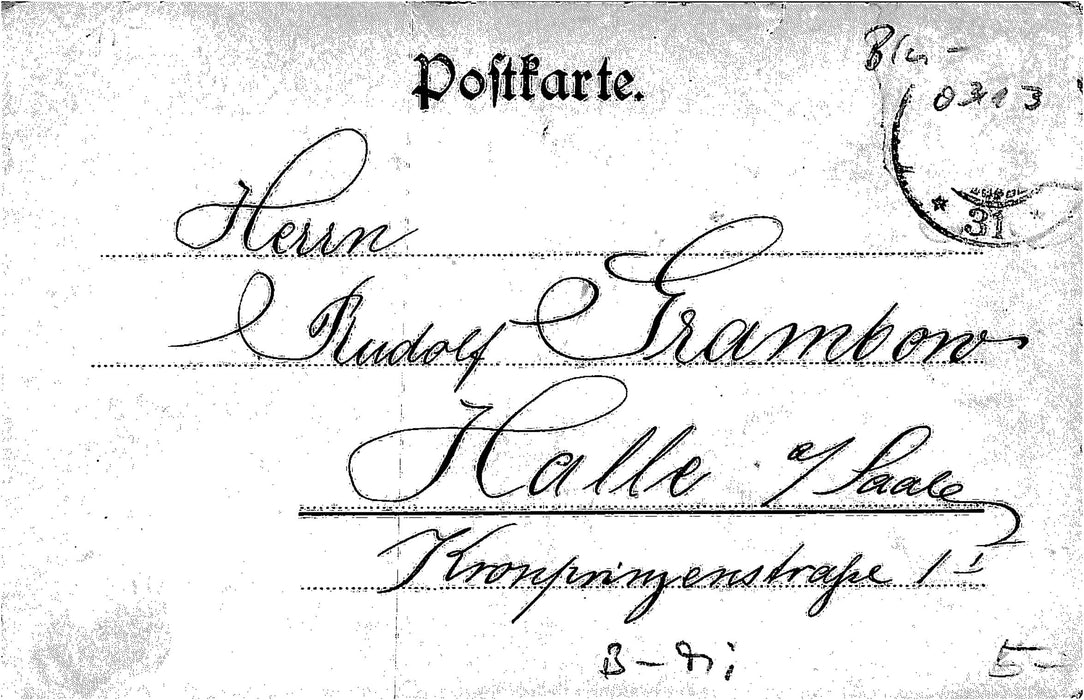 Postkarte.
Herrn
Rudolf Grambow
Halle a/Saale
Kronprinzenstraße 1 I
* 31